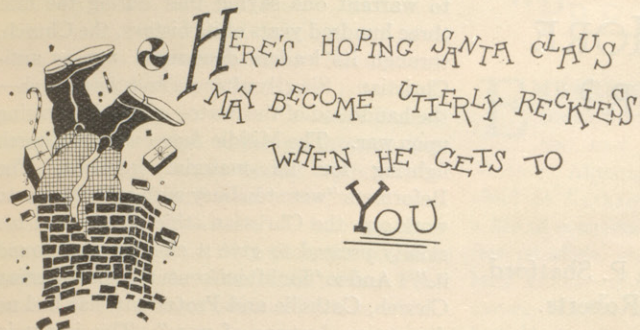 HERE'S HOPING SANTA CLAUS
MAY BECOME UTTERLY RECKLESS
WHEN HE GETS TO
YOU
R. S